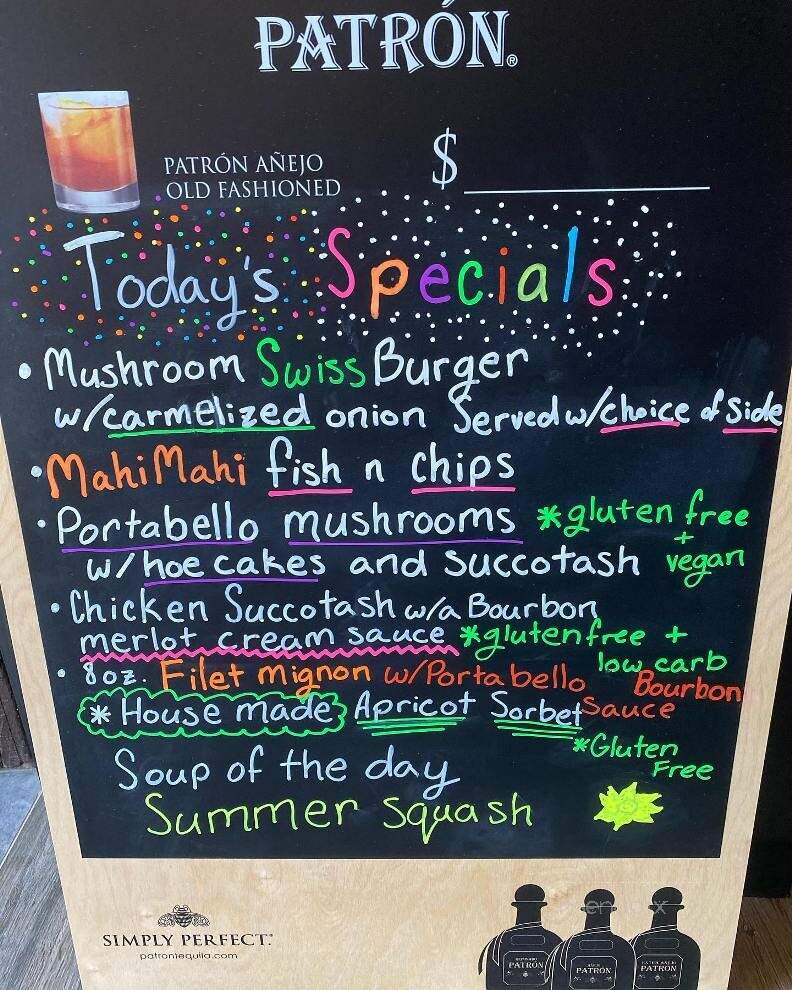 PATRÓN®
PATRÓN AÑEJO
OLD FASHIONED
$
Today's Specials
• Mushroom Swiss Burger
w/carmelized onion Served w/choice of side
• Mahi Mahi fish n chips
• Portabello mushrooms *gluten free
+
w/hoe cakes and succotash vegan
• Chicken Succotash w/a Bourbon
merlot cream sauce *gluten free +
low carb
• 8oz. Filet mignon w/Portabello Bourbon
Sauce
* House made Apricot Sorbet
*Gluten
Free
Soup of the day
Summer squash
SIMPLY PERFECT.
patrontequila.com
PATRÓN
AÑEJO
PATRÓN
EXTRA AÑEJO
PATRÓN